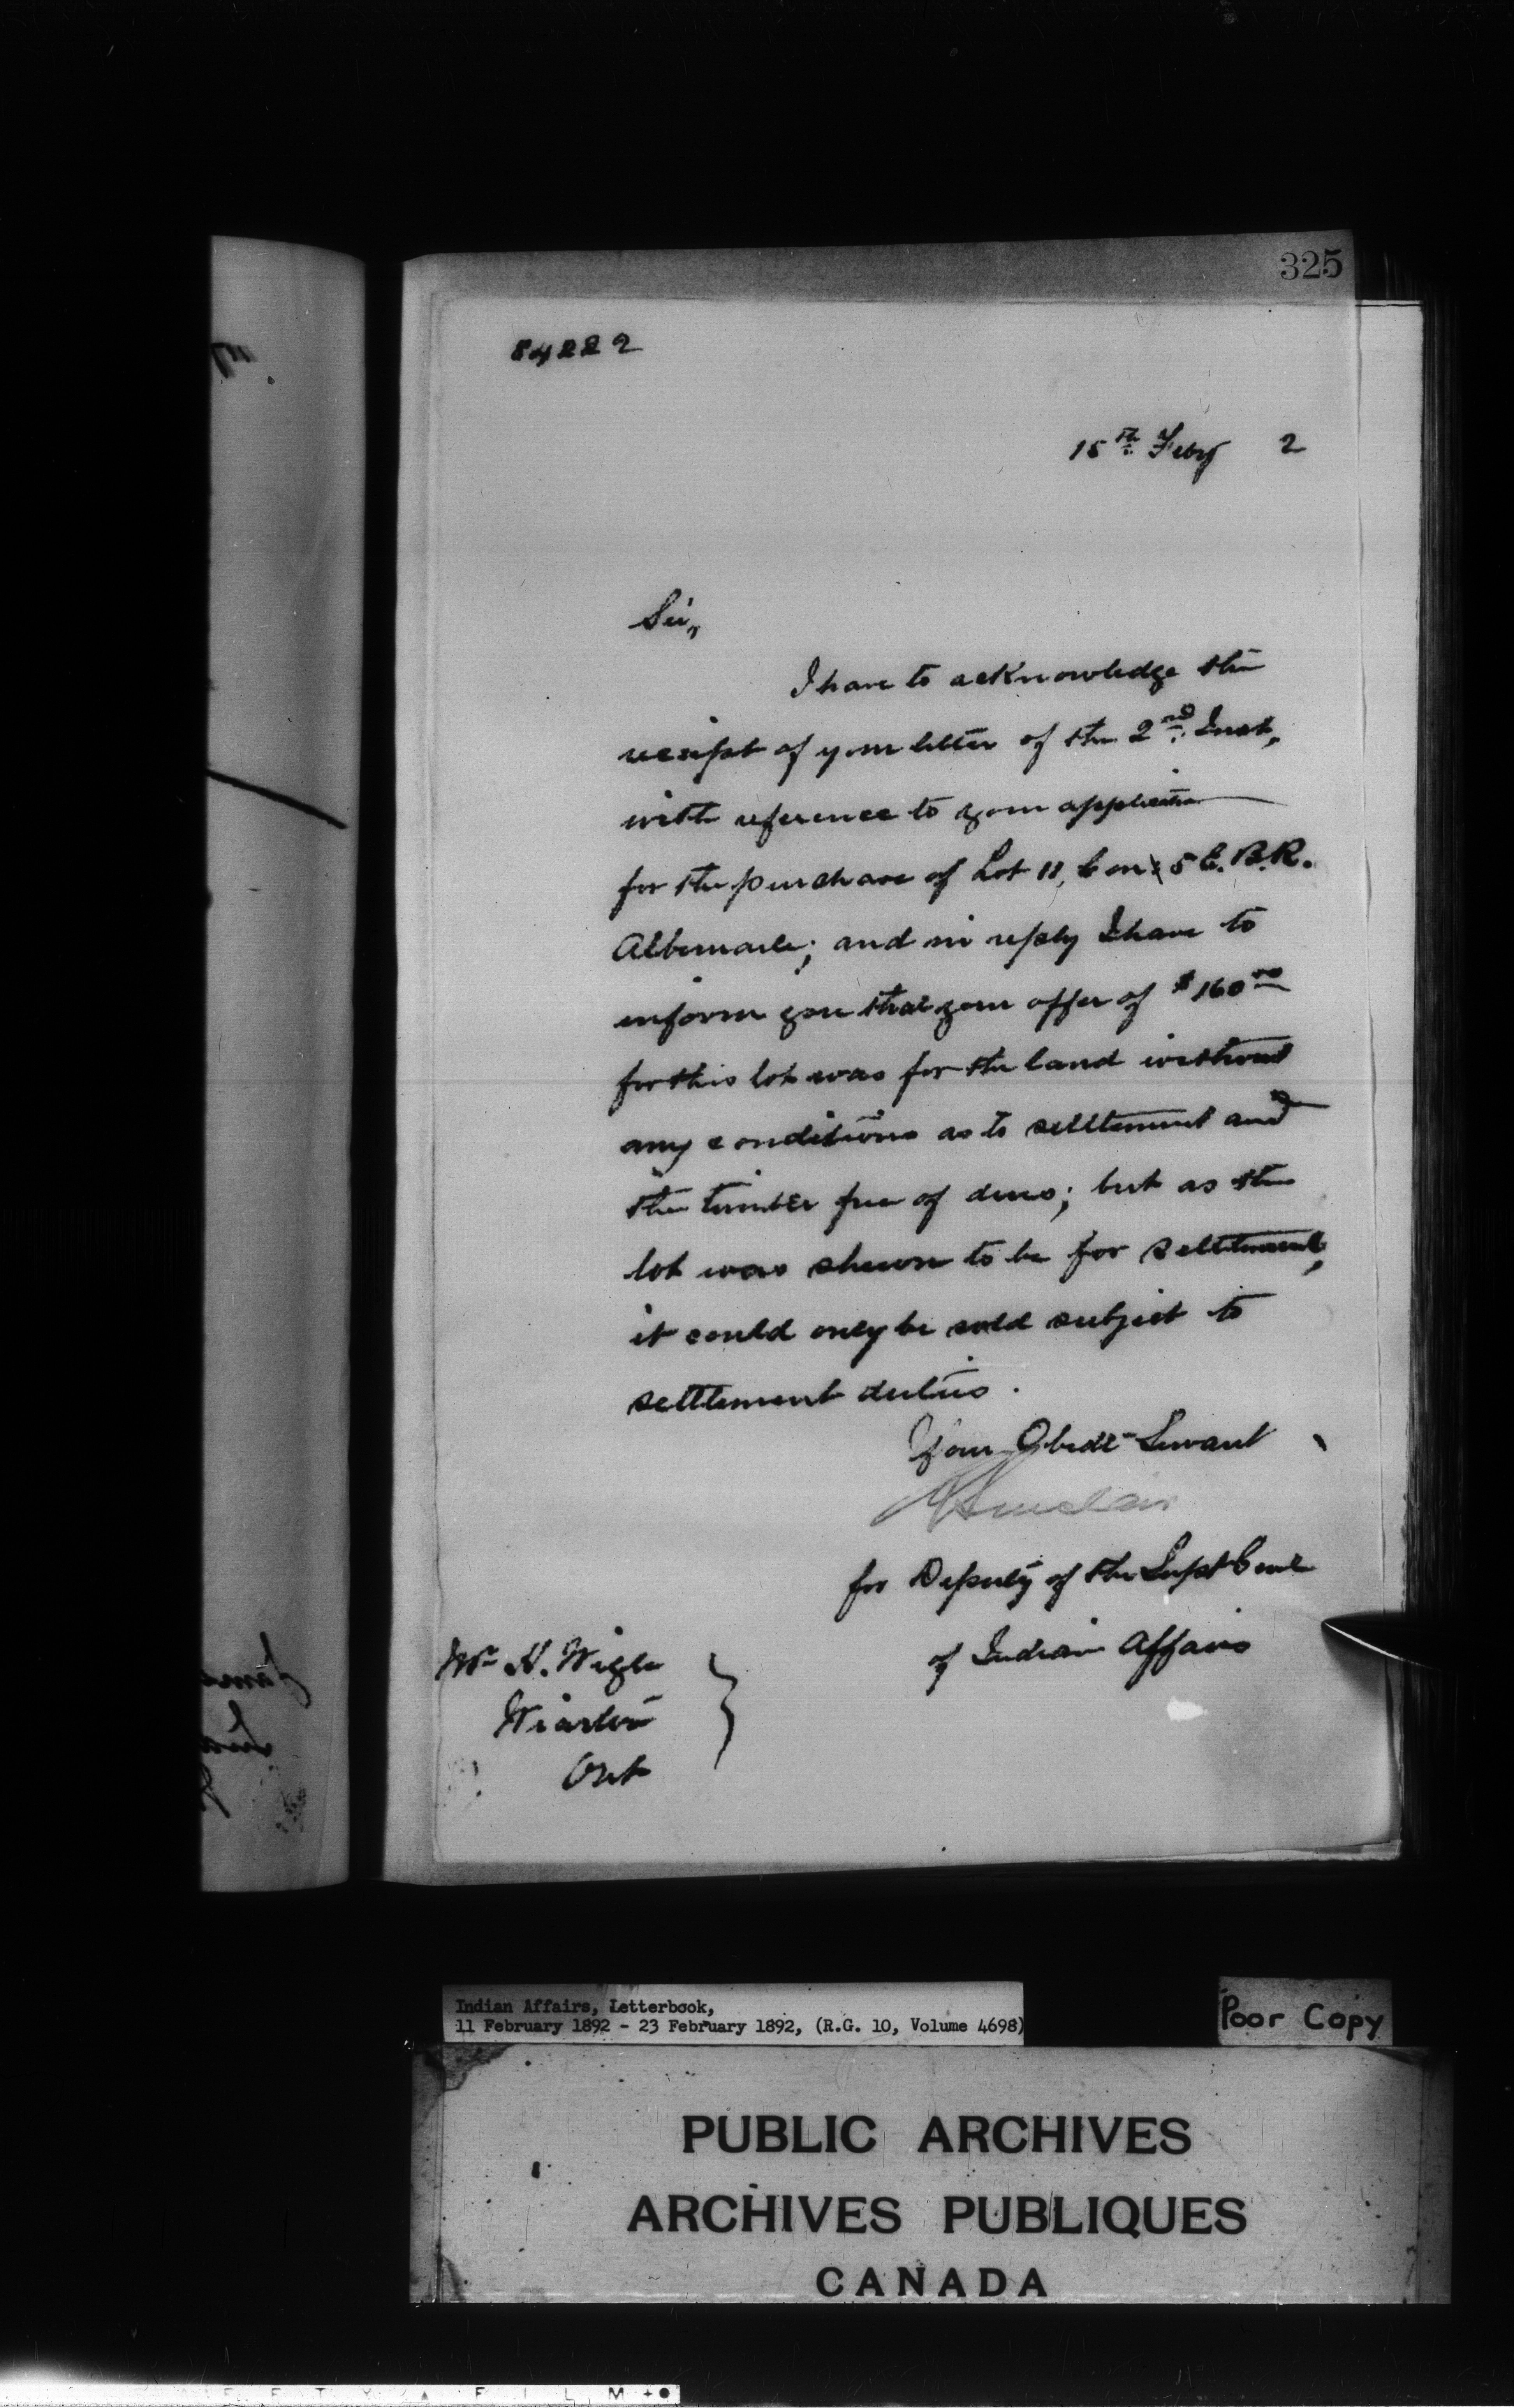 325
84222
15th Feby 2
Sir,
I have to acknowledge the
receipt of your letter of the 2nd Inst,
with reference to your application
for the purchase of Lot 11, Con: 5 E. B. R.
Albemarle; and in reply I have to
inform you that your offer of $160 00
for this lot was for the land without
any conditions as to settlement and
the timber free of dues; but as the
lot was shewn to be for settlement,
it could only be sold subject to
settlement duties.
Your Obedt Servant
for Deputy of the Supt Genl
of Indian Affairs
H. Wigle
Wiarton
Ont
Indian Affairs, Letterbook,
11 February 1892 - 23 February 1892, (R.G. 10, Volume 4698)
Poor Copy
PUBLIC ARCHIVES
ARCHIVES PUBLIQUES
CANADA